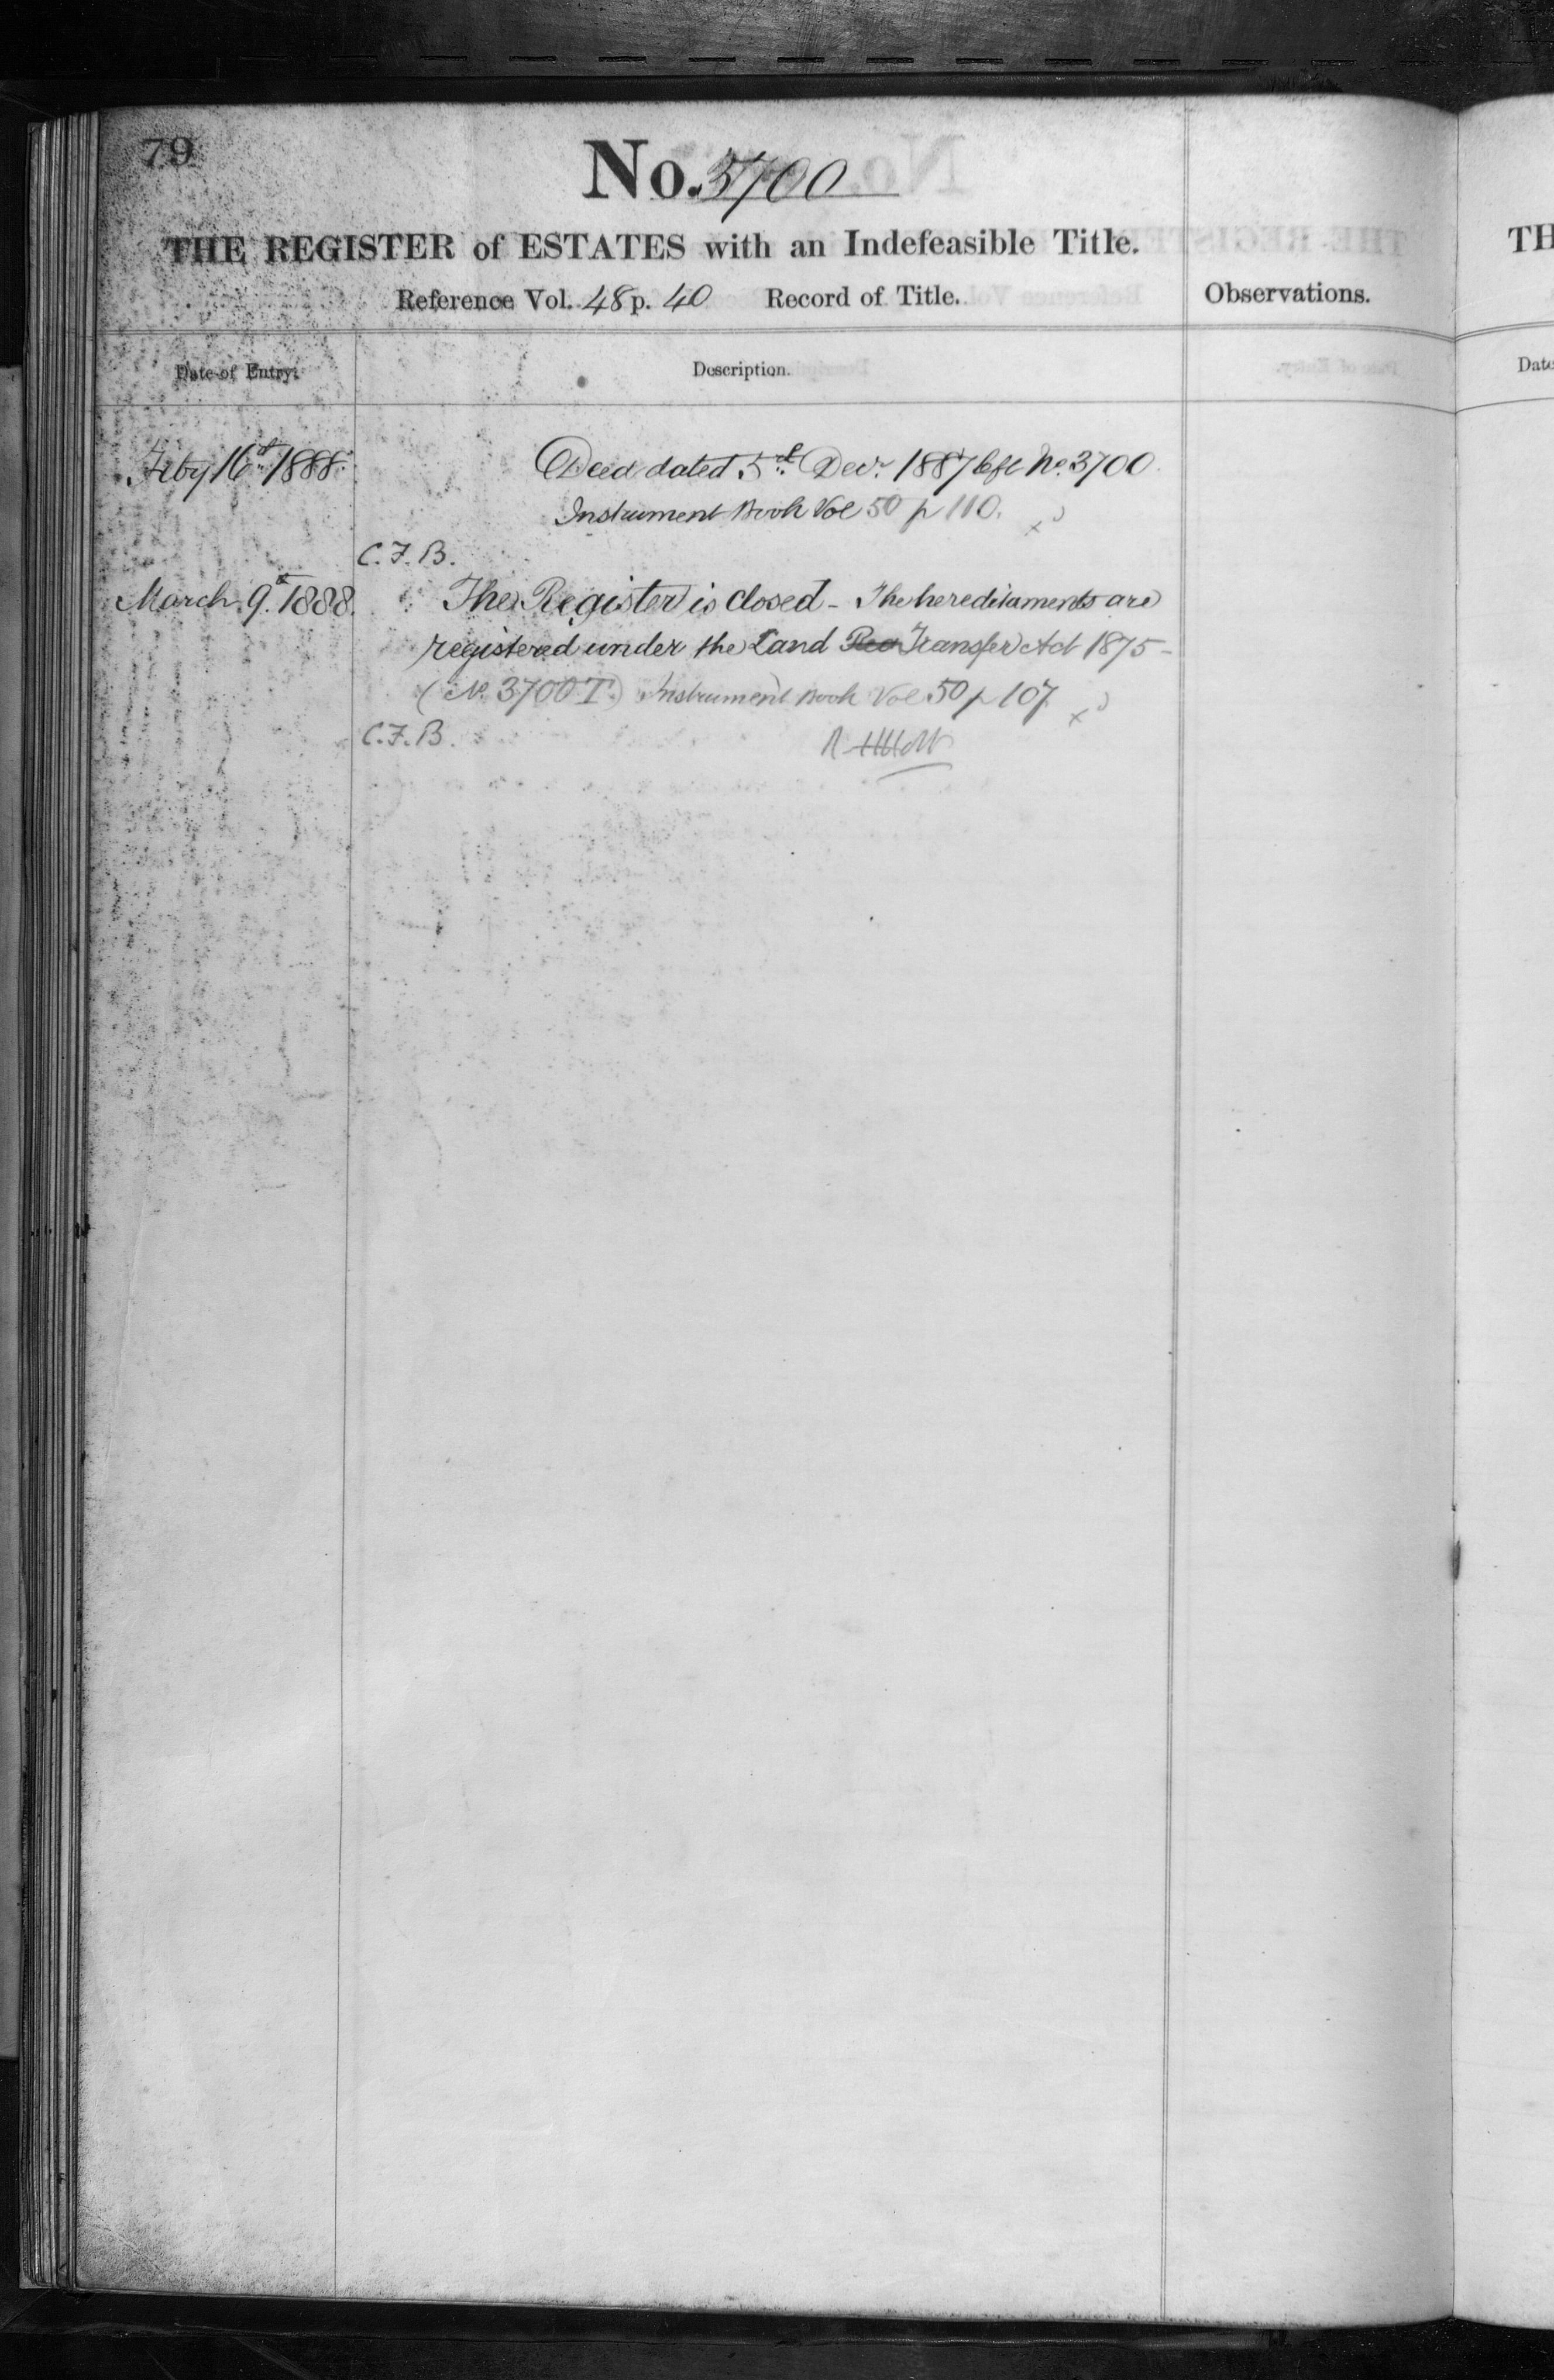 79
No. 3700
THE REGISTER of ESTATES with an Indefeasible Title.
Reference Vol. 48 p. 40 Record of Title.
Observations.
Date of Entry.
Description.
Feby 16th 1888.
Deed dated 5th Decr 1887 left No. 3700
Instrument Book Vol 50 p 110.
C.F.B.
March 9th 1888.
The Register is closed - The hereditaments are
registered under the Land Transfer Act 1875 -
(No. 3700 T.) Instrument Book Vol 50 p 107
C.F.B.
TH
Date